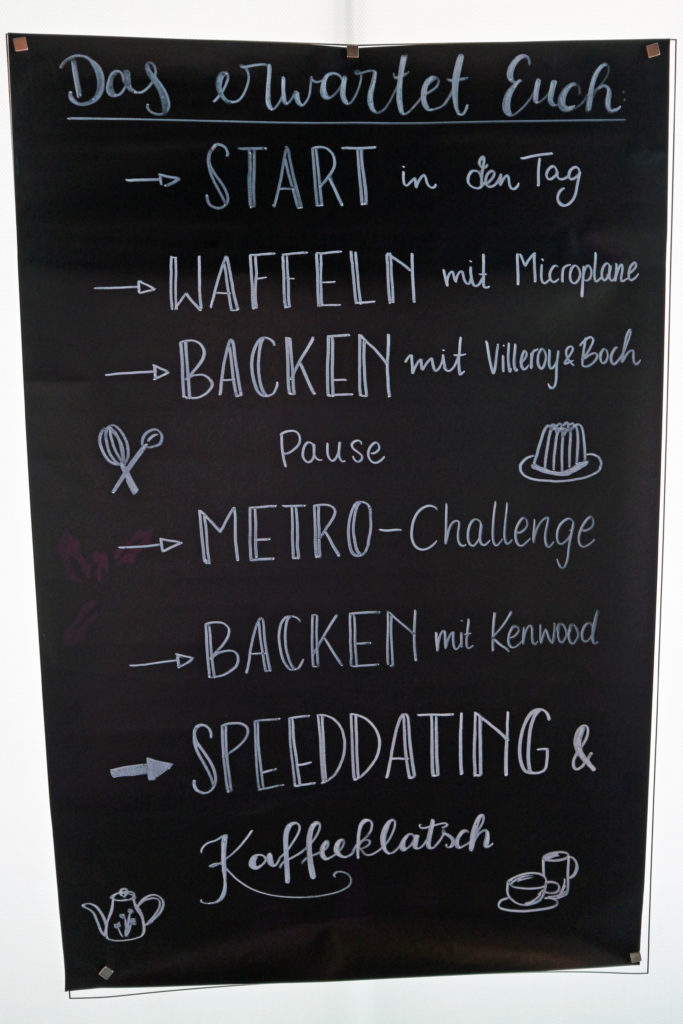 Das erwartet Euch:
→ START in den Tag
→ WAFFELN mit Microplane
→ BACKEN mit Villeroy & Boch
Pause
→ METRO-Challenge
→ BACKEN mit Kenwood
→ SPEEDDATING &
Kaffeeklatsch